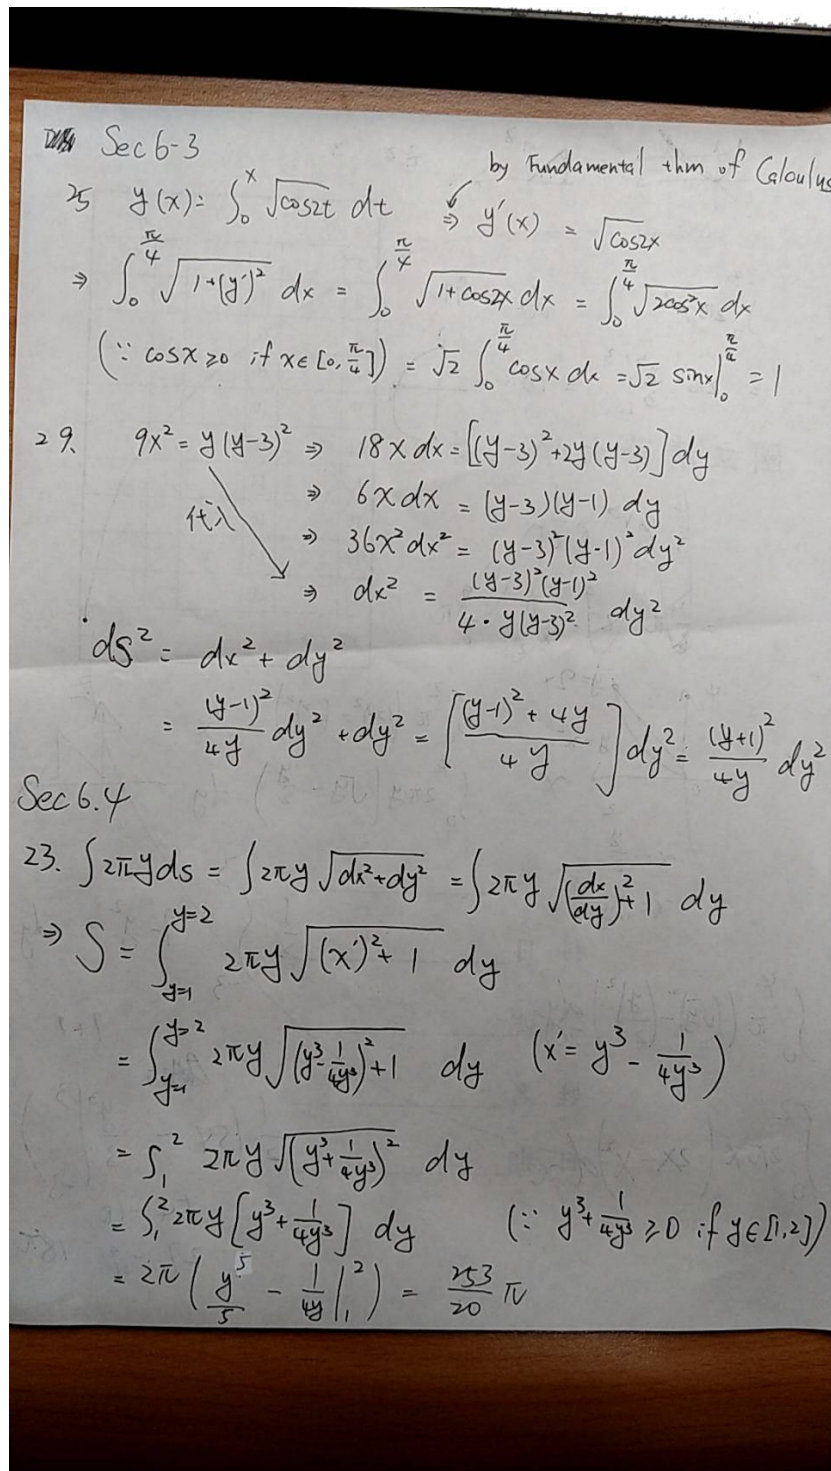 Sec 6-3
by Fundamental thm of Calculus
25 y(x) = ∫₀ˣ √(cos2t) dt ⇒ y'(x) = √(cos2x)
⇒ ∫₀^(π/4) √(1+(y')²) dx = ∫₀^(π/4) √(1+cos2x) dx = ∫₀^(π/4) √(2cos²x) dx
(∵ cosx ≥ 0 if x ∈ [0, π/4]) = √2 ∫₀^(π/4) cosx dx = √2 sinx |₀^(π/4) = 1
29. 9x² = y(y-3)² ⇒ 18x dx = [(y-3)² + 2y(y-3)] dy
⇒ 6x dx = (y-3)(y-1) dy
代入 ⇒ 36x² dx² = (y-3)²(y-1)² dy²
⇒ dx² = (y-3)²(y-1)² / (4・y(y-3)²) dy²
ds² = dx² + dy²
= (y-1)²/(4y) dy² + dy² = [((y-1)² + 4y)/(4y)] dy² = (y+1)²/(4y) dy²
Sec 6.4
23. ∫ 2πy ds = ∫ 2πy √(dx²+dy²) = ∫ 2πy √((dx/dy)² + 1) dy
⇒ S = ∫_(y=1)^(y=2) 2πy √((x')² + 1) dy
= ∫_(y=1)^(y=2) 2πy √((y³ - 1/(4y³))² + 1) dy (x' = y³ - 1/(4y³))
= ∫₁² 2πy √((y³ + 1/(4y³))²) dy
= ∫₁² 2πy [y³ + 1/(4y³)] dy (∵ y³ + 1/(4y³) ≥ 0 if y ∈ [1,2])
= 2π (y⁵/5 - 1/(4y) |₁²) = 253/20 π